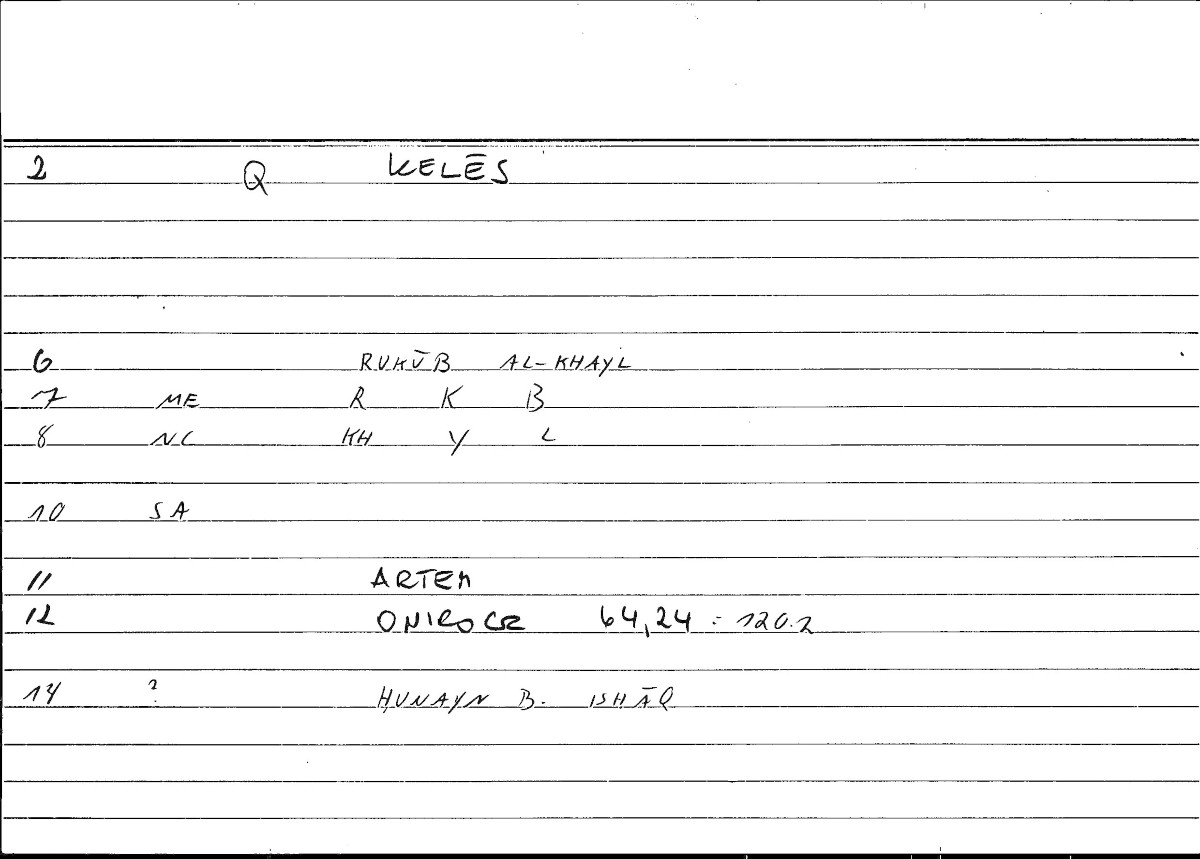 2 Q KELĒS
6 RUKŪB AL-KHAYL
7 ME R K B
8 NC KH Y L
10 SA
11 ARTEM
12 ONIROCR 64,24 = 120.2
14 ? ḤUNAYN B. ISḤĀQ